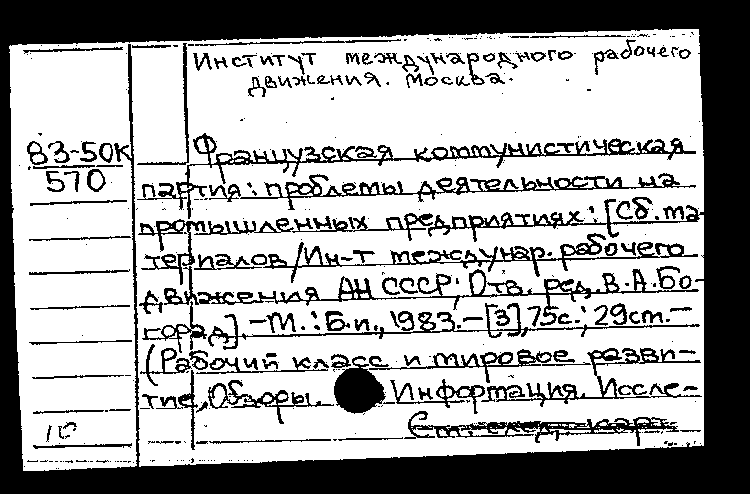 Институт международного рабочего
движения. Москва.
83-50К
570
Французская коммунистическая
партия: проблемы деятельности на
промышленных предприятиях: [Сб. ма-
териалов/Ин-т междунар. рабочего
движения АН СССР; Отв. ред. В.А.Бо-
город]. -М.: Б.и., 1983.-[3], 75с.; 29см.-
(Рабочий класс и мировое разви-
тие, Обзоры. Информация. Иссле-
См. след. карт.
10